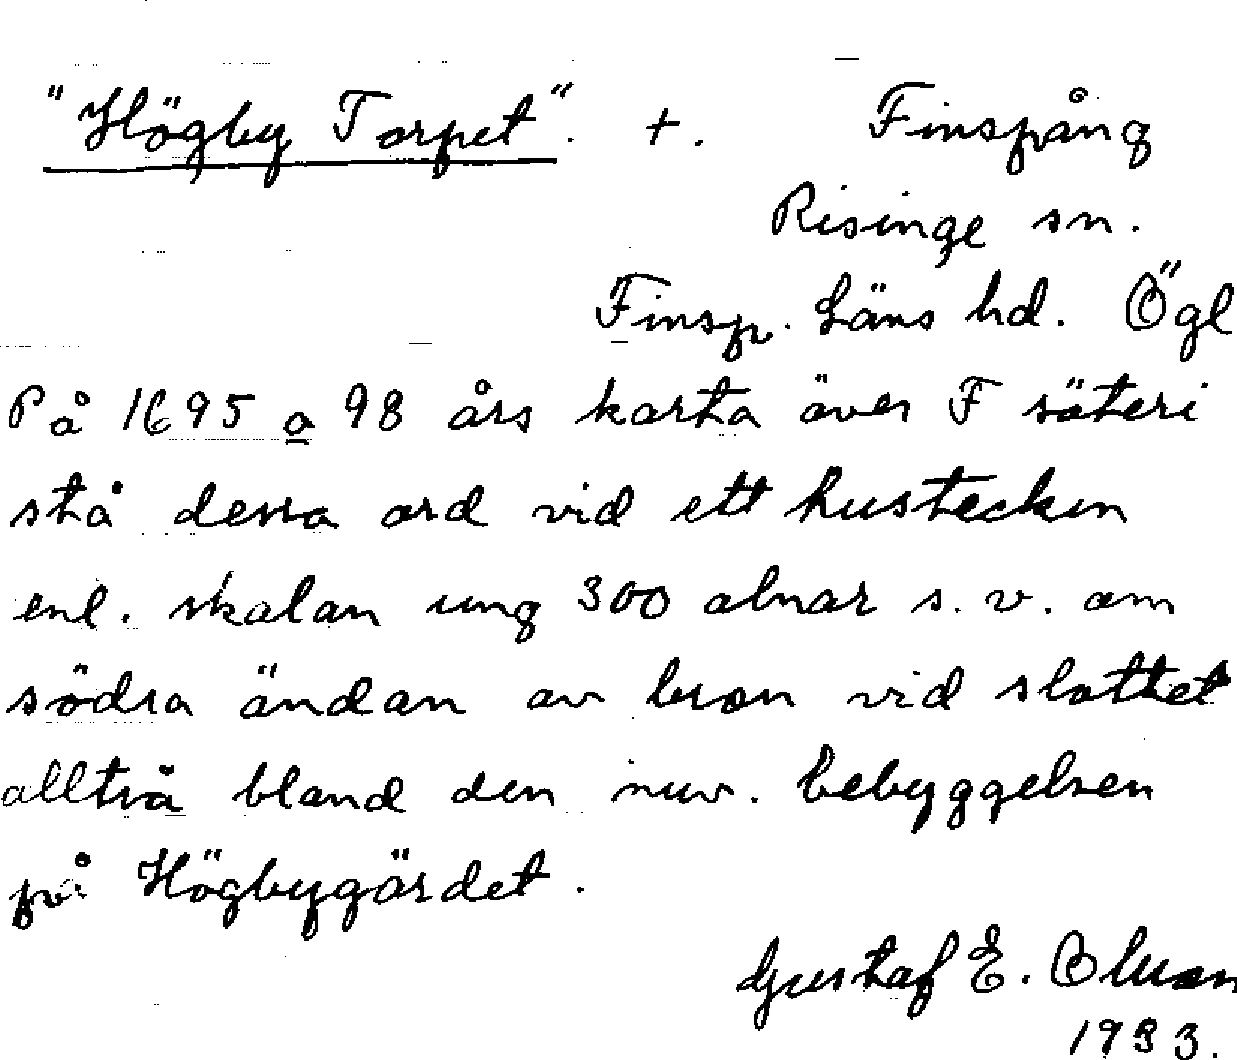 "Högby Torpet". +. Finspång
Risinge sn.
Finsp. Läns hd. Ögl
På 1695 a 98 års karta över F säteri
stå dessa ord vid ett hustecken
enl. skalan ung 300 alnar s.v. om
södra ändan av bron vid slottet
alltså bland den nuv. bebyggelsen
på Högbygärdet.
Gustaf E. Olsson
1933.